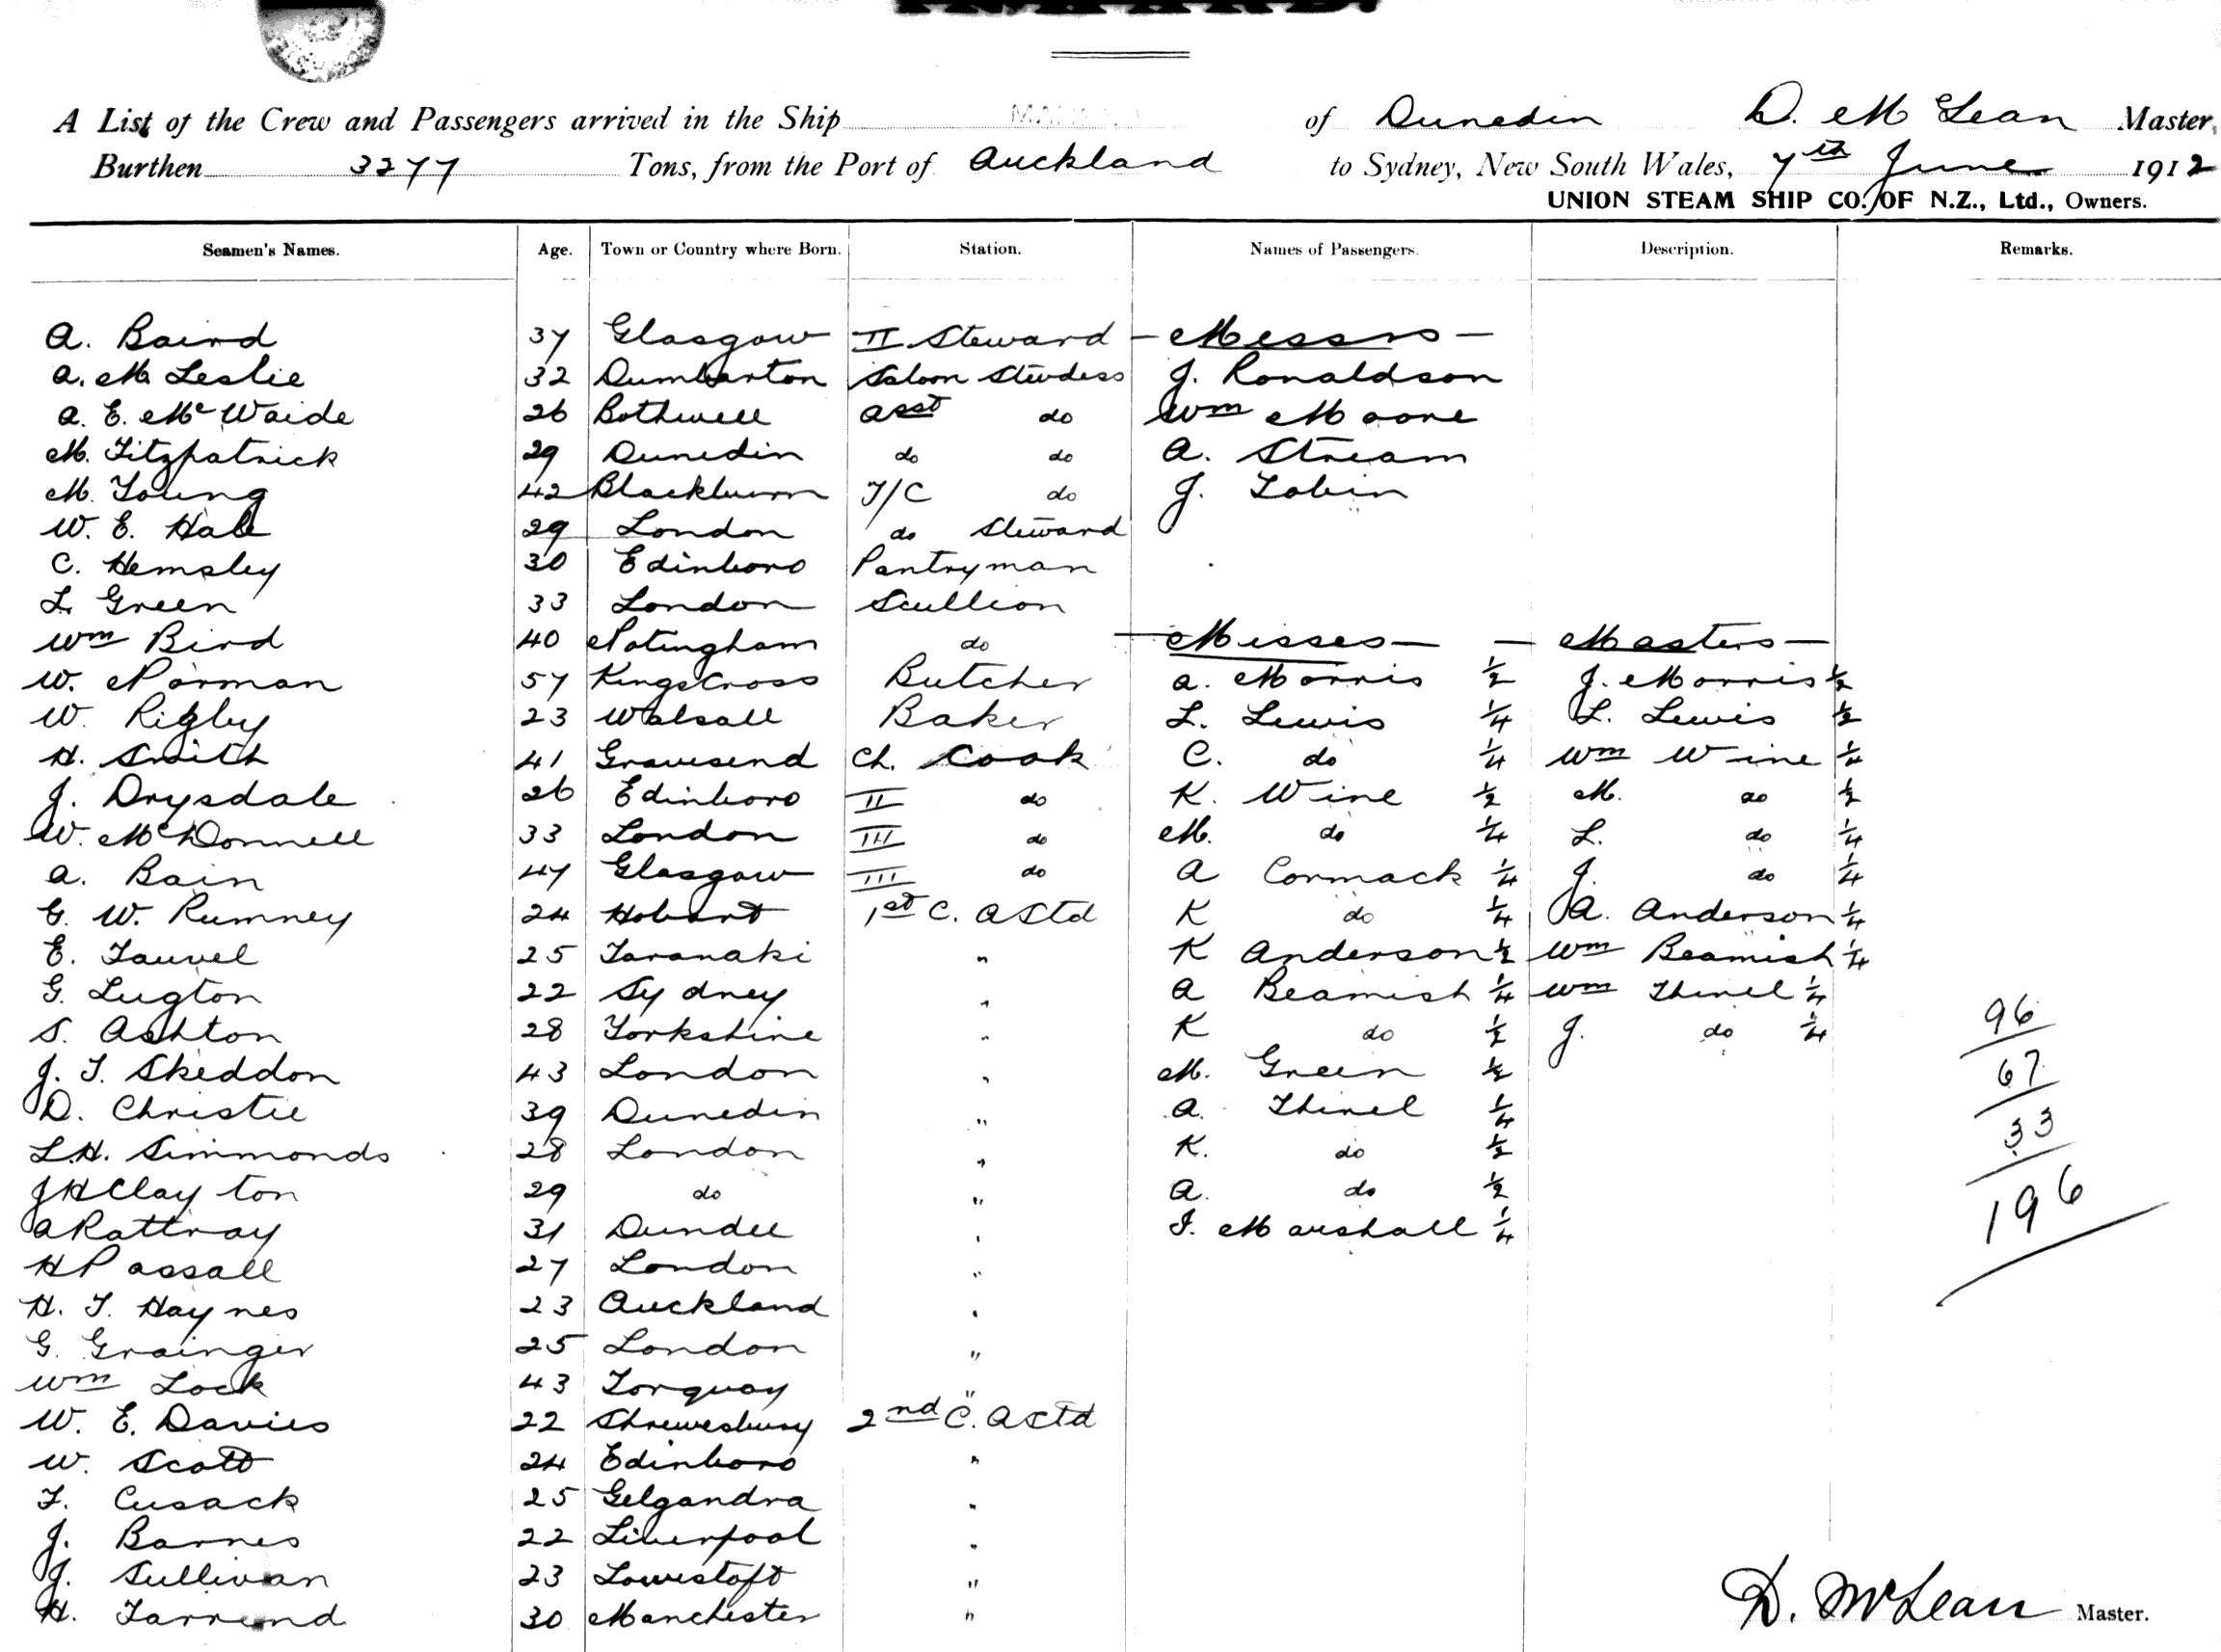 A List of the Crew and Passengers arrived in the Ship of Dunedin D. McLean Master,
Burthen 3277 Tons, from the Port of Auckland to Sydney, New South Wales, 7th June 1912
UNION STEAM SHIP CO. OF N.Z., Ltd., Owners.
Seamen's Names. Age. Town or Country where Born. Station. Names of Passengers. Description. Remarks.
A. Baird 37 Glasgow II Steward - Messrs -
A. M. Leslie 32 Dumbarton Saloon Stewdess J. Ronaldson
A. E. McWaide 26 Bothwell Asst do Wm Moore
M. Fitzpatrick 29 Dunedin do do A. Stream
M. Young 42 Blackburn T/C do J. Tobin
W. E. Hale 29 London do Steward
C. Hemsley 30 Edinboro Pantryman
L. Green 33 London Scullion
Wm Bird 40 Notingham do - Misses - - Masters -
W. Norman 57 Kings Cross Butcher A. Morris ½ J. Morris ½
W. Rigby 23 Walsall Baker L. Lewis ¼ L. Lewis ½
H. Smith 41 Gravesend Ch. Cook C. do ¼ Wm Wine ¼
J. Drysdale 26 Edinboro II do K. Wine ½ M. do ½
W. McDonnell 33 London III do M. do ¼ L. do ¼
A. Bain 47 Glasgow III do A Cormack ¼ J. do ¼
G. W. Rumney 24 Hobart 1st C. A Std K do ¼ A. Anderson ¼
E. Fauvel 25 Taranaki " K Anderson ½ Wm Beamish ¼
G. Lugton 22 Sydney " A Beamish ¼ Wm Thinel ¼
S. Ashton 28 Yorkshire " K do ½ J. do ¼ 96
J. T. Skeddon 43 London " M. Green ½ 67
D. Christie 39 Dunedin " A. Thinel ¼ 33
L.H. Simmonds 28 London " K. do ½
J H Clayton 29 do " A. do ½ 196
A Rattray 31 Dundee " I. Marshall ¼
H Passall 27 London "
H. T. Haynes 23 Auckland "
G. Grainger 25 London "
Wm Lock 43 Torquay "
W. E. Davies 22 Shrewesbury 2nd C. A Std
W. Scott 24 Edinboro "
F. Cusack 25 Gelgandra "
J. Barnes 22 Liverpool "
J. Sullivan 23 Lowestoft "
H. 30 Manchester " D. McLean Master.